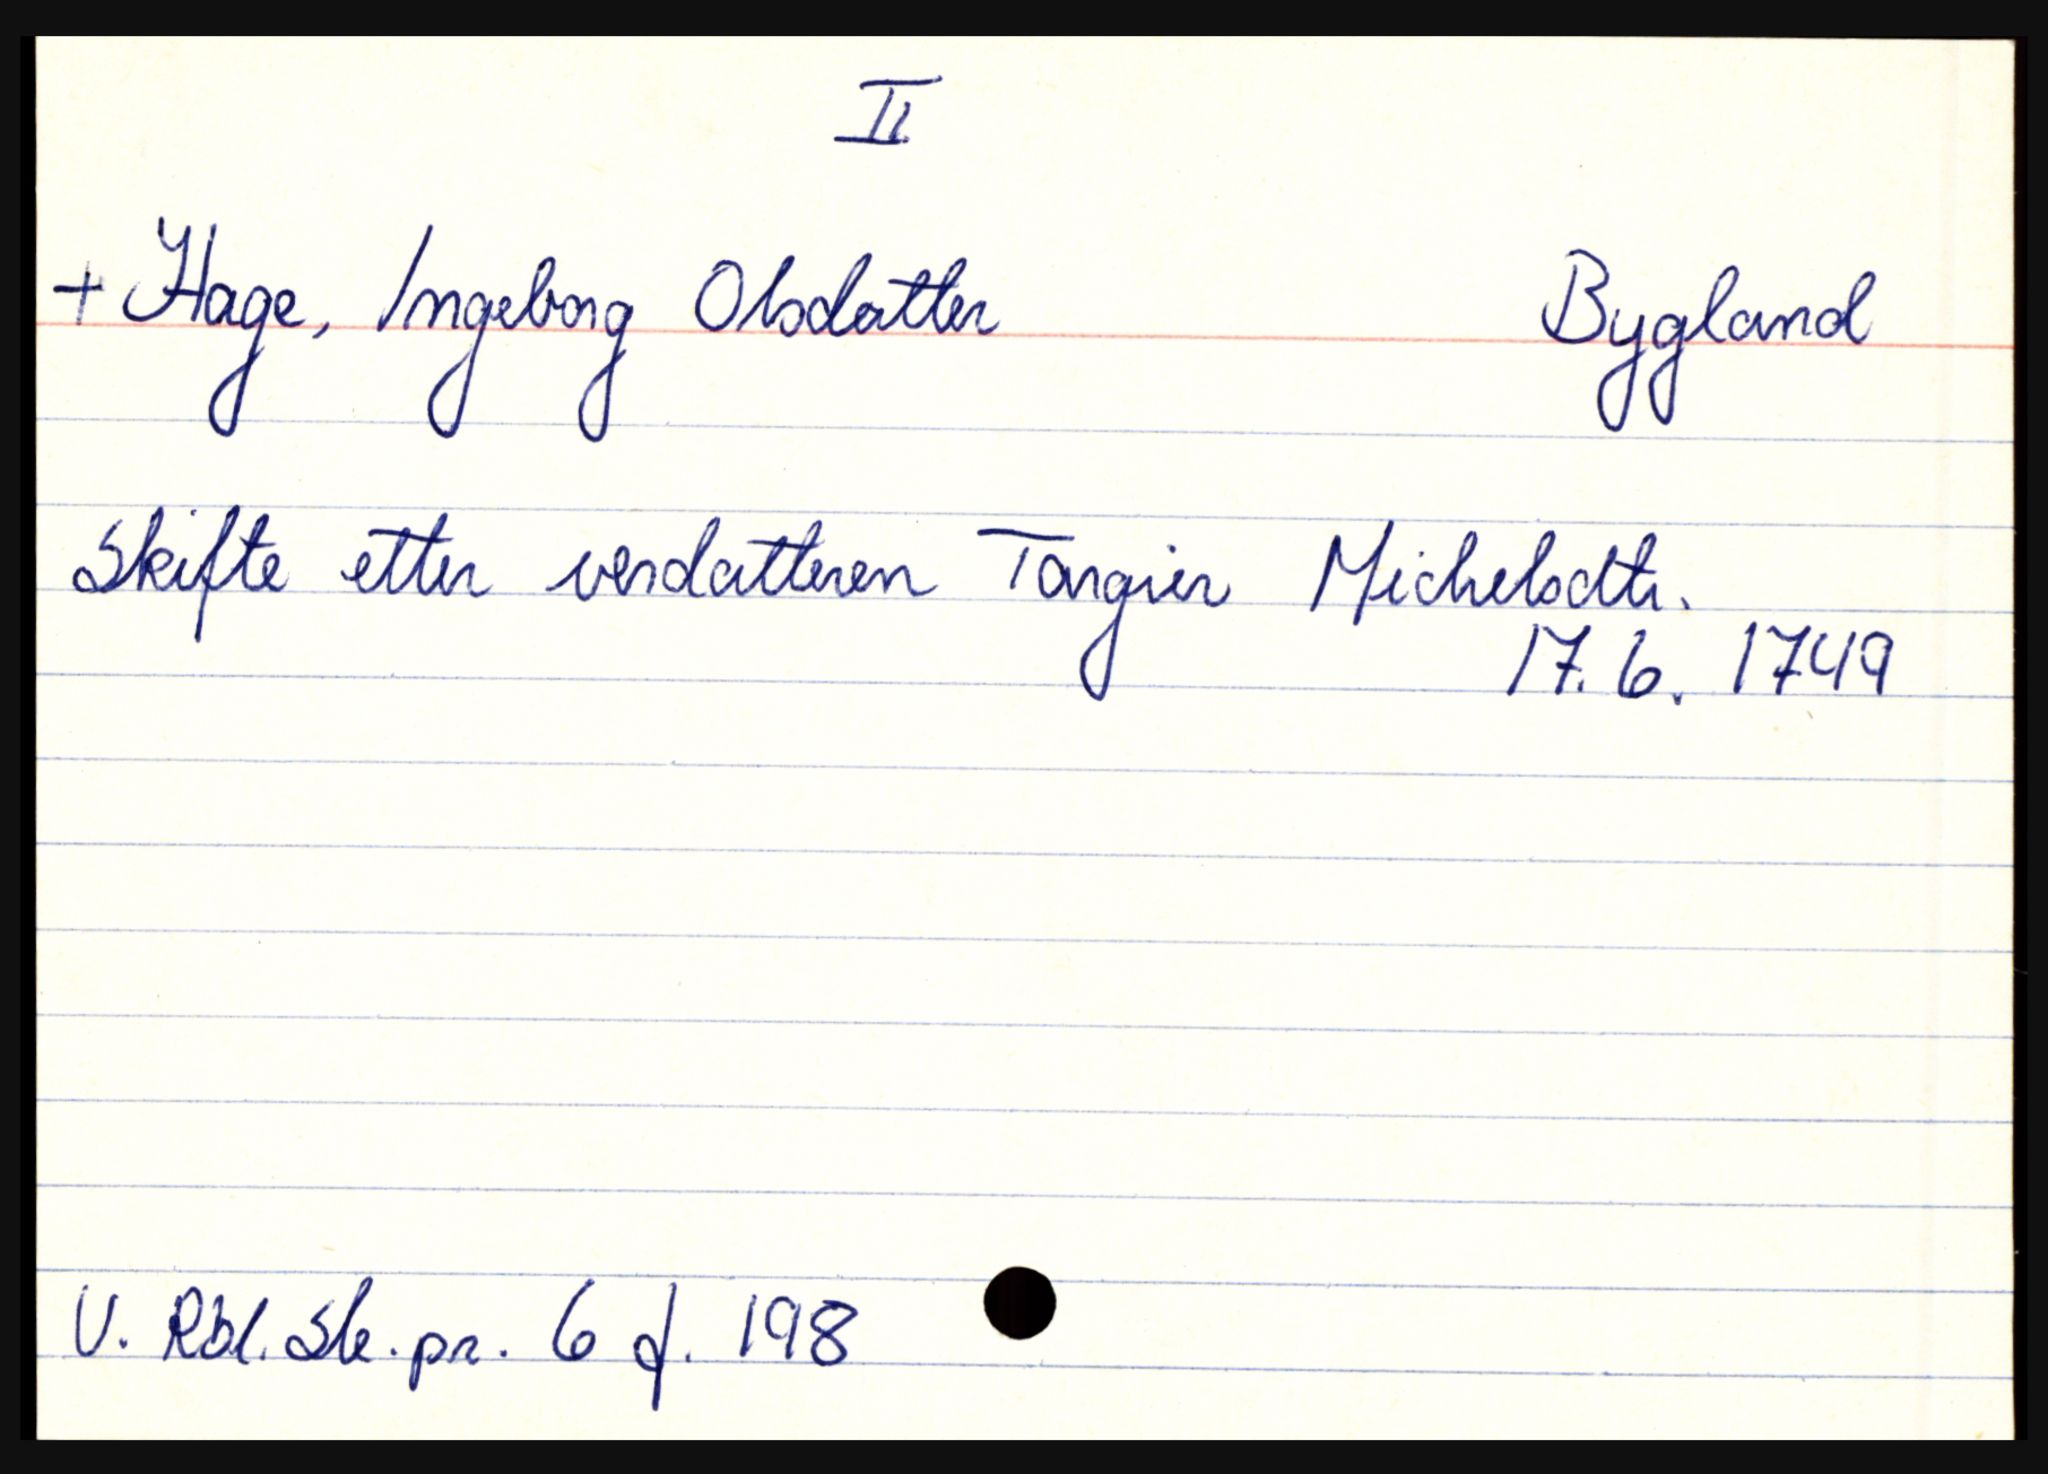 II
+ Hage, Ingeborg Olsdatter Bygland
Skifte etter verdatteren Torgier Michelsdtr.
17.6. 1749
V. Rbl. Sk. pr. 6 f. 198